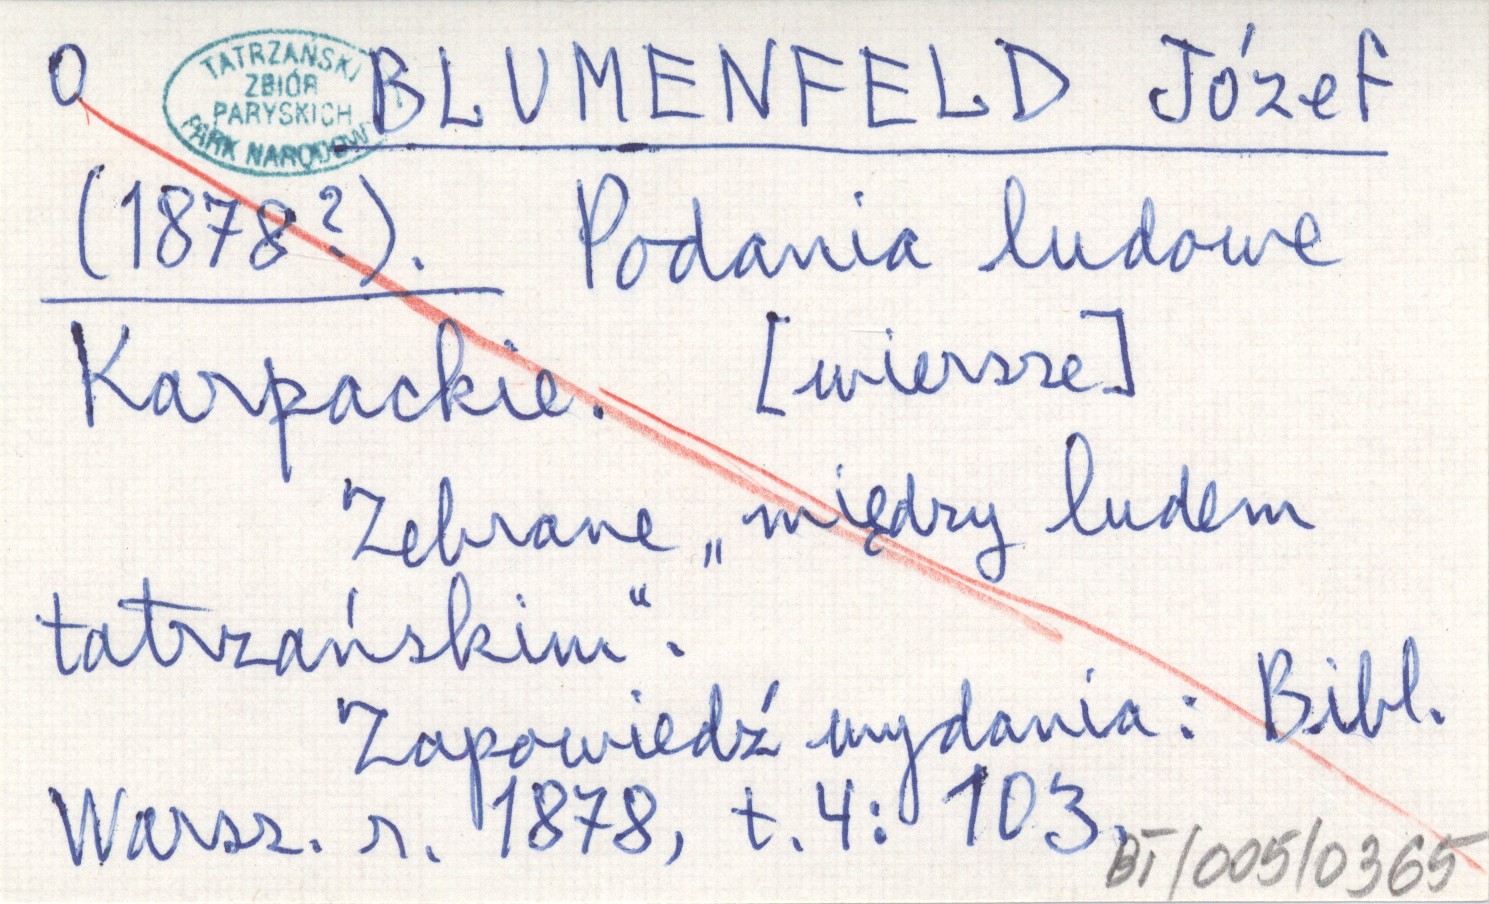 O BLUMENFELD Józef
TATRZAŃSKI
ZBIÓR
PARYSKICH
PARK NARODOWY
(1878?). Podania ludowe
Karpackie. [wiersze]
Zebrane „między ludem
tatrzańskim“.
Zapowiedź wydania: Bibl.
Warsz. r. 1878, t. 4: 103.
BT/005/0365